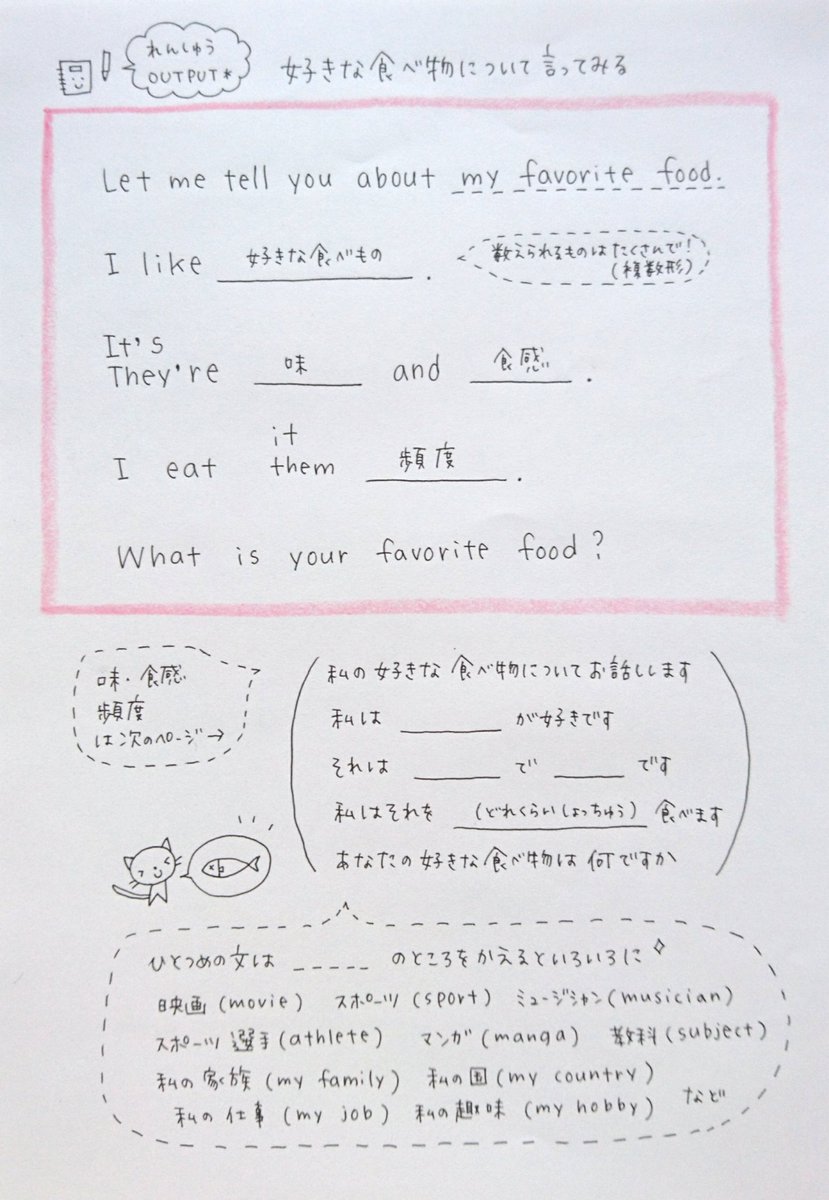 れんしゅう
OUTPUT*
好きな食べ物について言ってみる
Let me tell you about my favorite food.
I like 好きな食べもの .
数えられるものはたくさんで!
(複数形)
It's
They're 味 and 食感 .
it
I eat them 頻度 .
What is your favorite food?
味・食感
頻度
は次のページ→
私の好きな食べ物についてお話しします
私は ______ が好きです
それは ______ で _____ です
私はそれを (どれくらいしょっちゅう) 食べます
あなたの好きな食べ物は何ですか
ひとつめの文は _____ のところをかえるといろいろに
映画(movie) スポーツ(sport) ミュージシャン(musician)
スポーツ選手(athlete) マンガ(manga) 教科(subject)
私の家族(my family) 私の国(my country)
私の仕事(my job) 私の趣味(my hobby) など